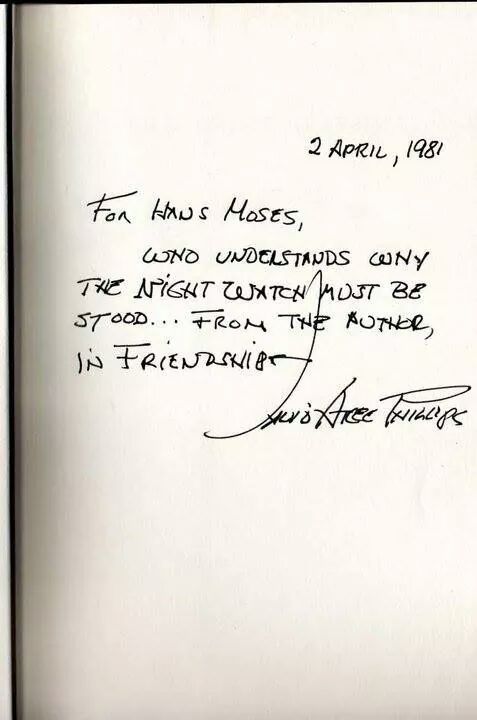 2 APRIL, 1981
FOR HANS MOSES,
WHO UNDERSTANDS WHY
THE NIGHT WATCH MUST BE
STOOD... FROM THE AUTHOR,
IN FRIENDSHIP
David Atlee Phillips